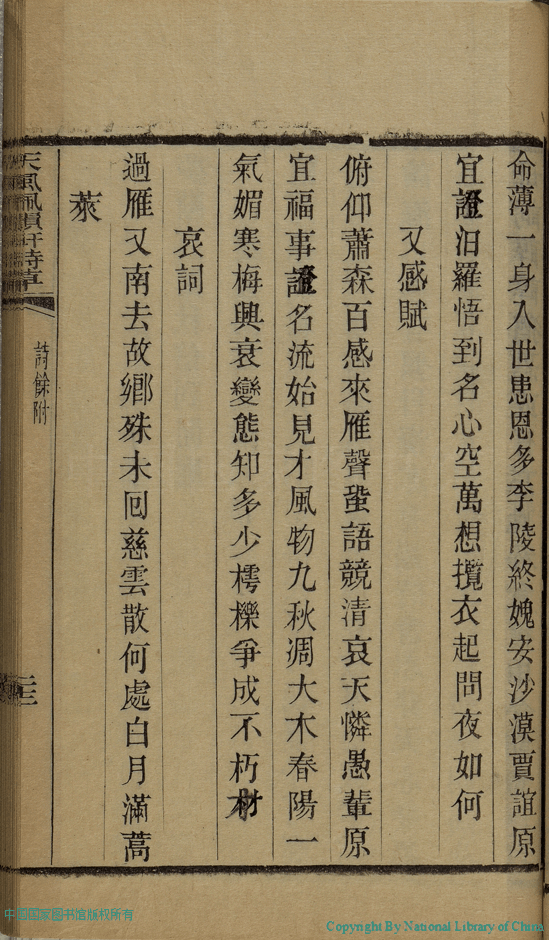 命薄一身入世患恩多李陵終媿安沙漠賈誼原
宜證汨羅悟到名心空萬想攬衣起問夜如何
又感賦
俯仰蕭森百感來雁聲蛩語競清哀天憐愚輩原
宜福事證名流始見才風物九秋凋大木春陽一
氣媚寒梅興衰變態知多少樗櫟爭成不朽材
哀詞
過雁又南去故鄉殊未回慈雲散何處白月滿蒿
萊
詩餘附
中国国家图书馆版权所有
Copyright By National Library of China